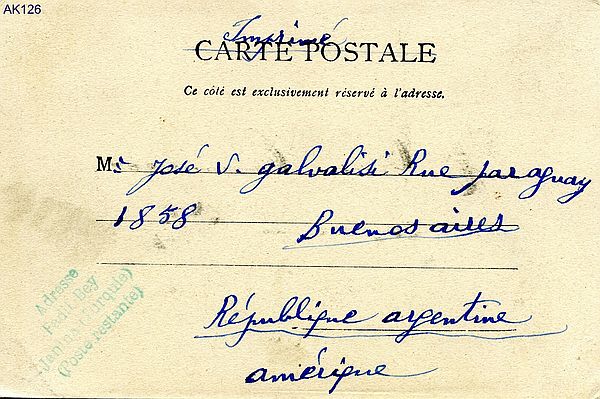 AK126
Imprimé
CARTE POSTALE
Ce côté est exclusivement réservé à l'adresse.
M: José V. galvalisi Rue paraguay
1858 Buenos aires
République argentine
amérique
Adresse
bey
(Poste restante)